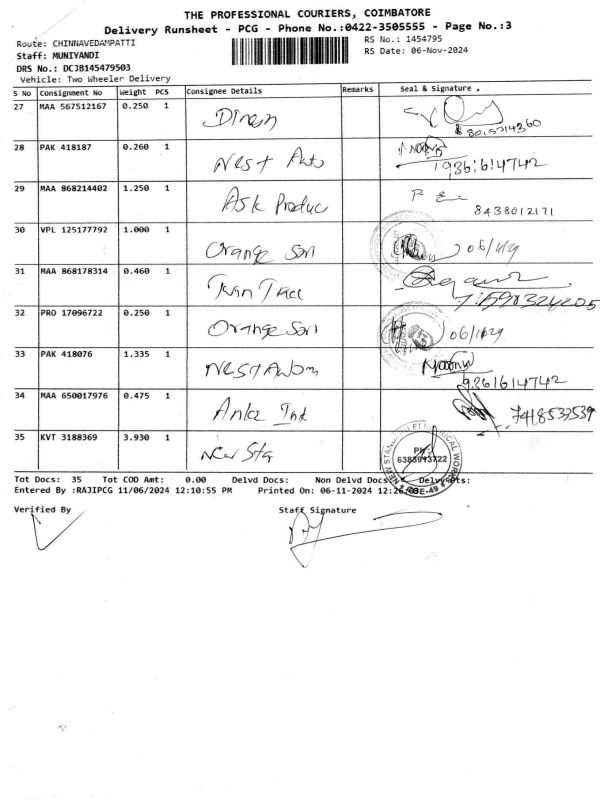 THE PROFESSIONAL COURIERS, COIMBATORE
Delivery Runsheet - PCG - Phone No.:0422-3505555 - Page No.:3
Route: CHINNAVEDAMPATTI
RS No.: 1454795
Staff: MUNIYANDI
RS Date: 06-Nov-2024
DRS No.: DCJB145479503
Vehicle: Two Wheeler Delivery
S No Consignment No Weight PCS Consignee Details Remarks Seal & Signature
27 MAA 567512167 0.250 1
28 PAK 418187 0.260 1 Nest Auto 9361614742
29 MAA 868214402 1.250 1 Ask Produc 8438012171
30 VPL 125177792 1.000 1 Orange Sori
31 MAA 868178314 0.460 1
32 PRO 17096722 0.250 1 Orange Sori
33 PAK 418076 1.335 1 9361614742
34 MAA 650017976 0.475 1 7418533539
35 KVT 3188369 3.930 1 New Sta 6383913722
Tot Docs: 35 Tot COD Amt: 0.00 Delvd Docs: Non Delvd Docs:
Entered By :RAJIPCG 11/06/2024 12:10:55 PM Printed On: 06-11-2024
Verified By Staff Signature